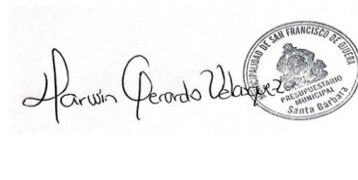 Marwin Gerardo Velasquez
MUNICIPALIDAD DE SAN FRANCISCO DE OJUERA
PRESUPUESTARIO
MUNICIPAL
Santa Barbara